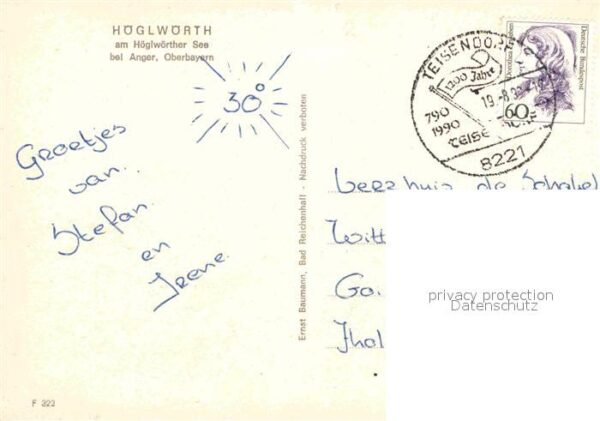 HÖGLWÖRTH
am Höglwörther See
bei Anger, Oberbayern
30°
Groetjes
van
Stefan
en
Irene.
Ernst Baumann, Bad Reichenhall - Nachdruck verboten
F 323
TEISENDORF
1200 Jahre
790
1990
8221
60
Deutsche Bundespost
Leeshuis de Schakel
Witt
Go
privacy protection
Datenschutz